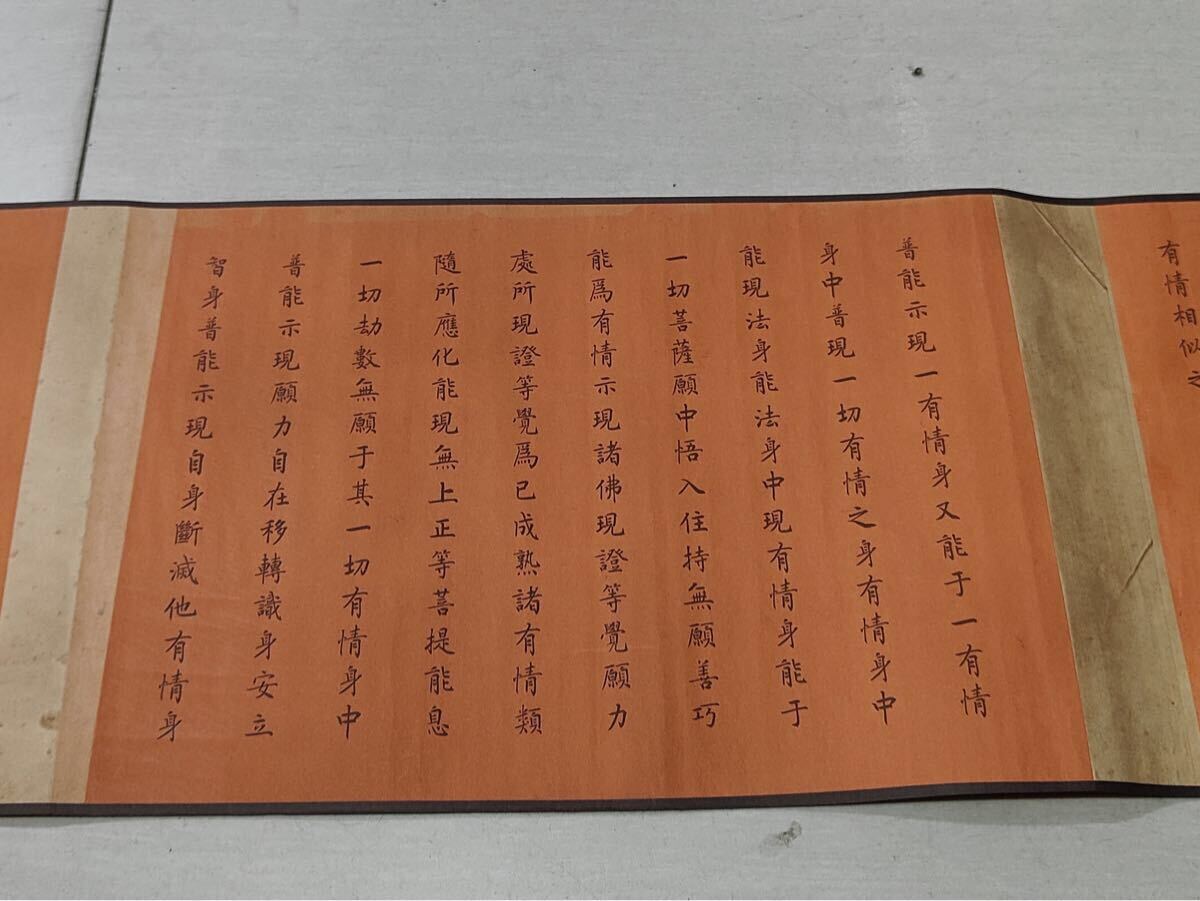 有情相似之
普能示現一有情身又能于一有情
身中普現一切有情之身有情身中
能現法身能法身中現有情身能于
一切菩薩願中悟入住持無願善巧
能爲有情示現諸佛現證等覺願力
處所現證等覺爲已成熟諸有情類
隨所應化能現無上正等菩提能息
一切劫數無願于其一切有情身中
普能示現願力自在移轉識身安立
智身普能示現自身斷滅他有情身